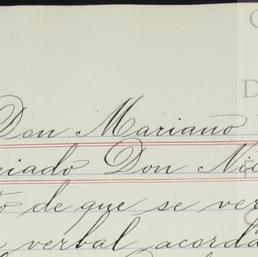 Don Mariano
ciado Don Nic
to de que se ver
verbal acorda